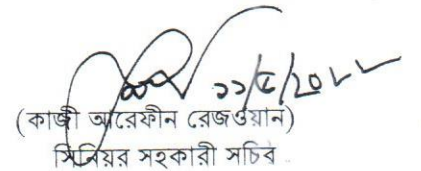 ১১/৫/২০২২
(কাজী আরেফীন রেজওয়ান)
সিনিয়র সহকারী সচিব